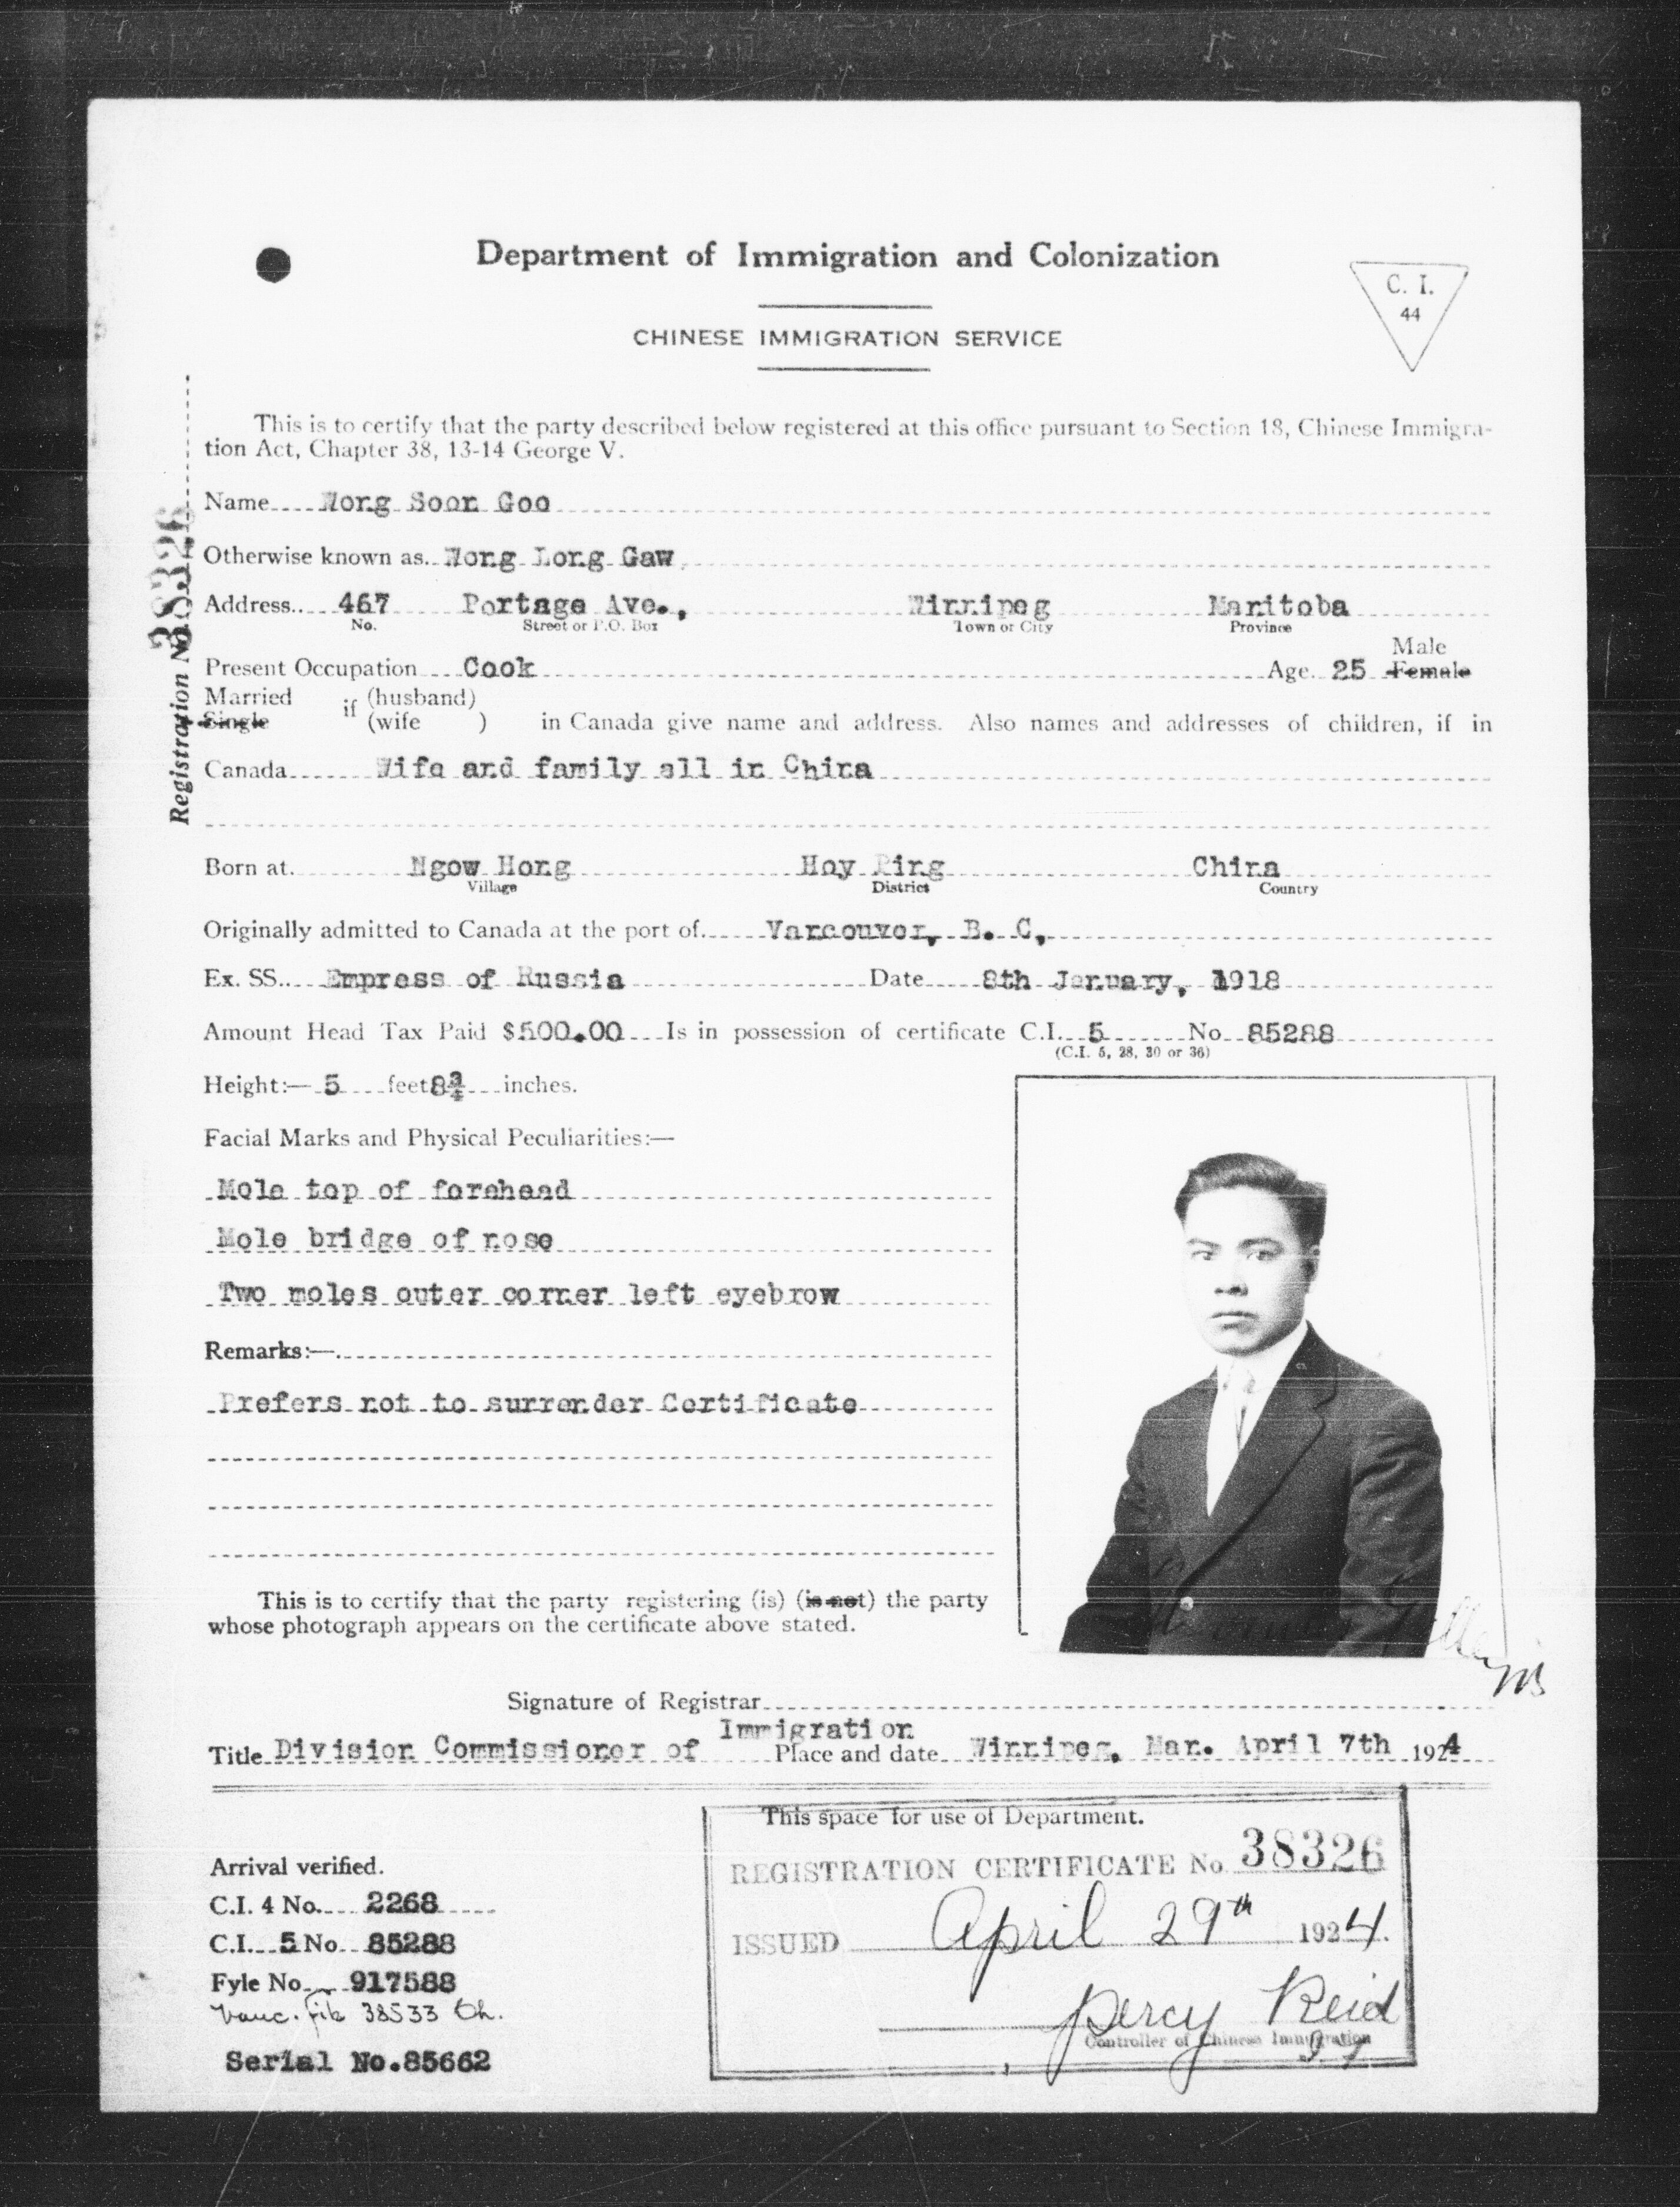 Department of Immigration and Colonization
C. I.
44
CHINESE IMMIGRATION SERVICE
This is to certify that the party described below registered at this office pursuant to Section 18, Chinese Immigra-
tion Act, Chapter 38, 13-14 George V.
Registration No. 38326
Name Wong Soon Goo
Otherwise known as Wong Long Gaw
Address 467 Portage Ave., Winnipeg Manitoba
No. Street or P.O. Box Town or City Province
Male
Present Occupation Cook Age 25 Female
Married if (husband)
Single (wife ) in Canada give name and address. Also names and addresses of children, if in
Canada Wife and family all in China
Born at Ngow Hong Hoy Ping China
Village District Country
Originally admitted to Canada at the port of Vancouver, B. C.
Ex. SS. Empress of Russia Date 8th January, 1918
Amount Head Tax Paid $500.00 Is in possession of certificate C.I. 5 No 85288
(C.I. 5, 28, 30 or 36)
Height:— 5 feet 8¾ inches.
Facial Marks and Physical Peculiarities:—
Mole top of forehead
Mole bridge of nose
Two moles outer corner left eyebrow
Remarks:—
Prefers not to surrender Certificate
This is to certify that the party registering (is) (is not) the party
whose photograph appears on the certificate above stated.
Signature of Registrar
Immigration
Title Division Commissioner of Place and date Winnipeg, Man. April 7th 1924
This space for use of Department.
REGISTRATION CERTIFICATE No 38326
ISSUED April 29th 1924.
Percy Reid
Controller of Chinese Immigration
Arrival verified.
C.I. 4 No. 2268
C.I. 5 No. 85288
Fyle No. 917588
Vanc. file 38533 Ch.
Serial No. 85662